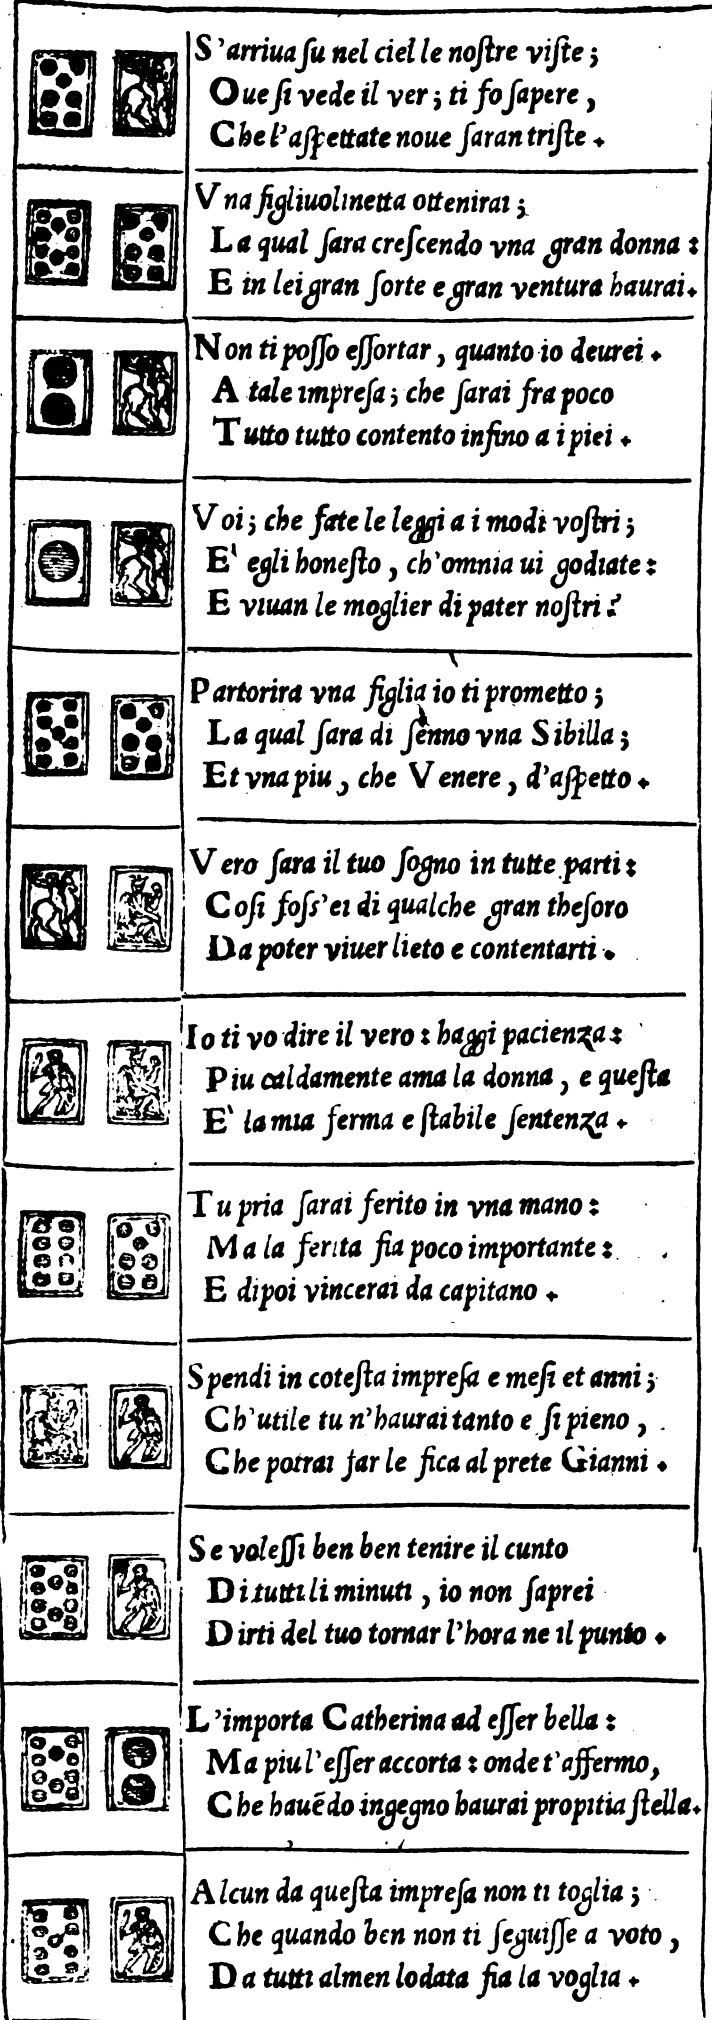 S'arriua ſu nel ciel le noſtre viſte;
Oue ſi vede il ver; ti fo ſapere,
Che l'aſpettate noue ſaran triſte.
Vna figliuolinetta ottenirai;
La qual ſara creſcendo vna gran donna:
E in lei gran ſorte e gran ventura haurai.
Non ti poſſo eſſortar, quanto io deurei.
A tale impreſa; che ſarai fra poco
Tutto tutto contento inſino a i piei.
Voi; che fate le leggi a i modi voſtri;
E' egli honeſto, ch'omnia ui godiate:
E viuan le moglier di pater noſtri?
Partorira vna figlia io ti prometto;
La qual ſara di ſenno vna Sibilla;
Et vna piu, che Venere, d'aſpetto.
Vero ſara il tuo ſogno in tutte parti:
Coſi foſs'ei di qualche gran theſoro
Da poter viuer lieto e contentarti.
Io ti vo dire il vero: haggi pacienza:
Piu caldamente ama la donna, e queſta
E' la mia ferma e ſtabile ſentenza.
Tu pria ſarai ferito in vna mano:
Ma la ferita fia poco importante:
E dipoi vincerai da capitano.
Spendi in coteſta impreſa e meſi et anni;
Ch'utile tu n'haurai tanto e ſi pieno,
Che potrai far le fica al prete Gianni.
Se voleſſi ben ben tenire il cunto
Di tutti li minuti, io non ſaprei
Dirti del tuo tornar l'hora ne il punto.
L'importa Catherina ad eſſer bella:
Ma piu l'eſſer accorta: onde t'affermo,
Che hauēdo ingegno haurai propitia ſtella.
Alcun da queſta impreſa non ti toglia;
Che quando ben non ti ſeguiſſe a voto,
Da tutti almen lodata fia la voglia.